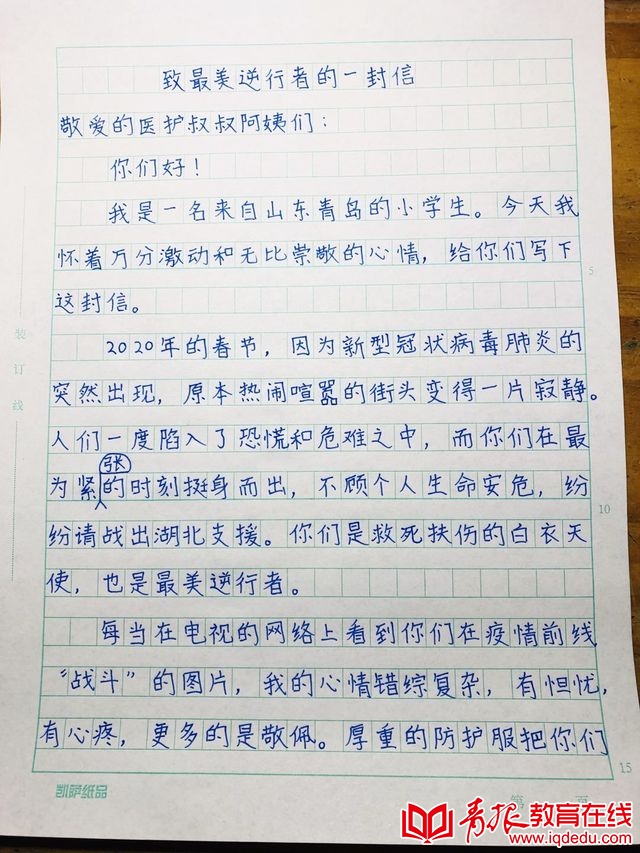 致最美逆行者的一封信
敬爱的医护叔叔阿姨们：
你们好！
我是一名来自山东青岛的小学生。今天我
怀着万分激动和无比崇敬的心情，给你们写下
5
这封信。
2020年的春节，因为新型冠状病毒肺炎的
突然出现，原本热闹喧嚣的街头变得一片寂静。
人们一度陷入了恐慌和危难之中，而你们在最
为紧张的时刻挺身而出，不顾个人生命安危，纷
10
纷请战出湖北支援。你们是救死扶伤的白衣天
使，也是最美逆行者。
每当在电视的网络上看到你们在疫情前线
“战斗”的图片，我的心情错综复杂，有怛忧，
有心疼，更多的是敬佩。厚重的防护服把你们
15
装订线
凯萨纸品
第 页
青报教育在线
www.iqdedu.com